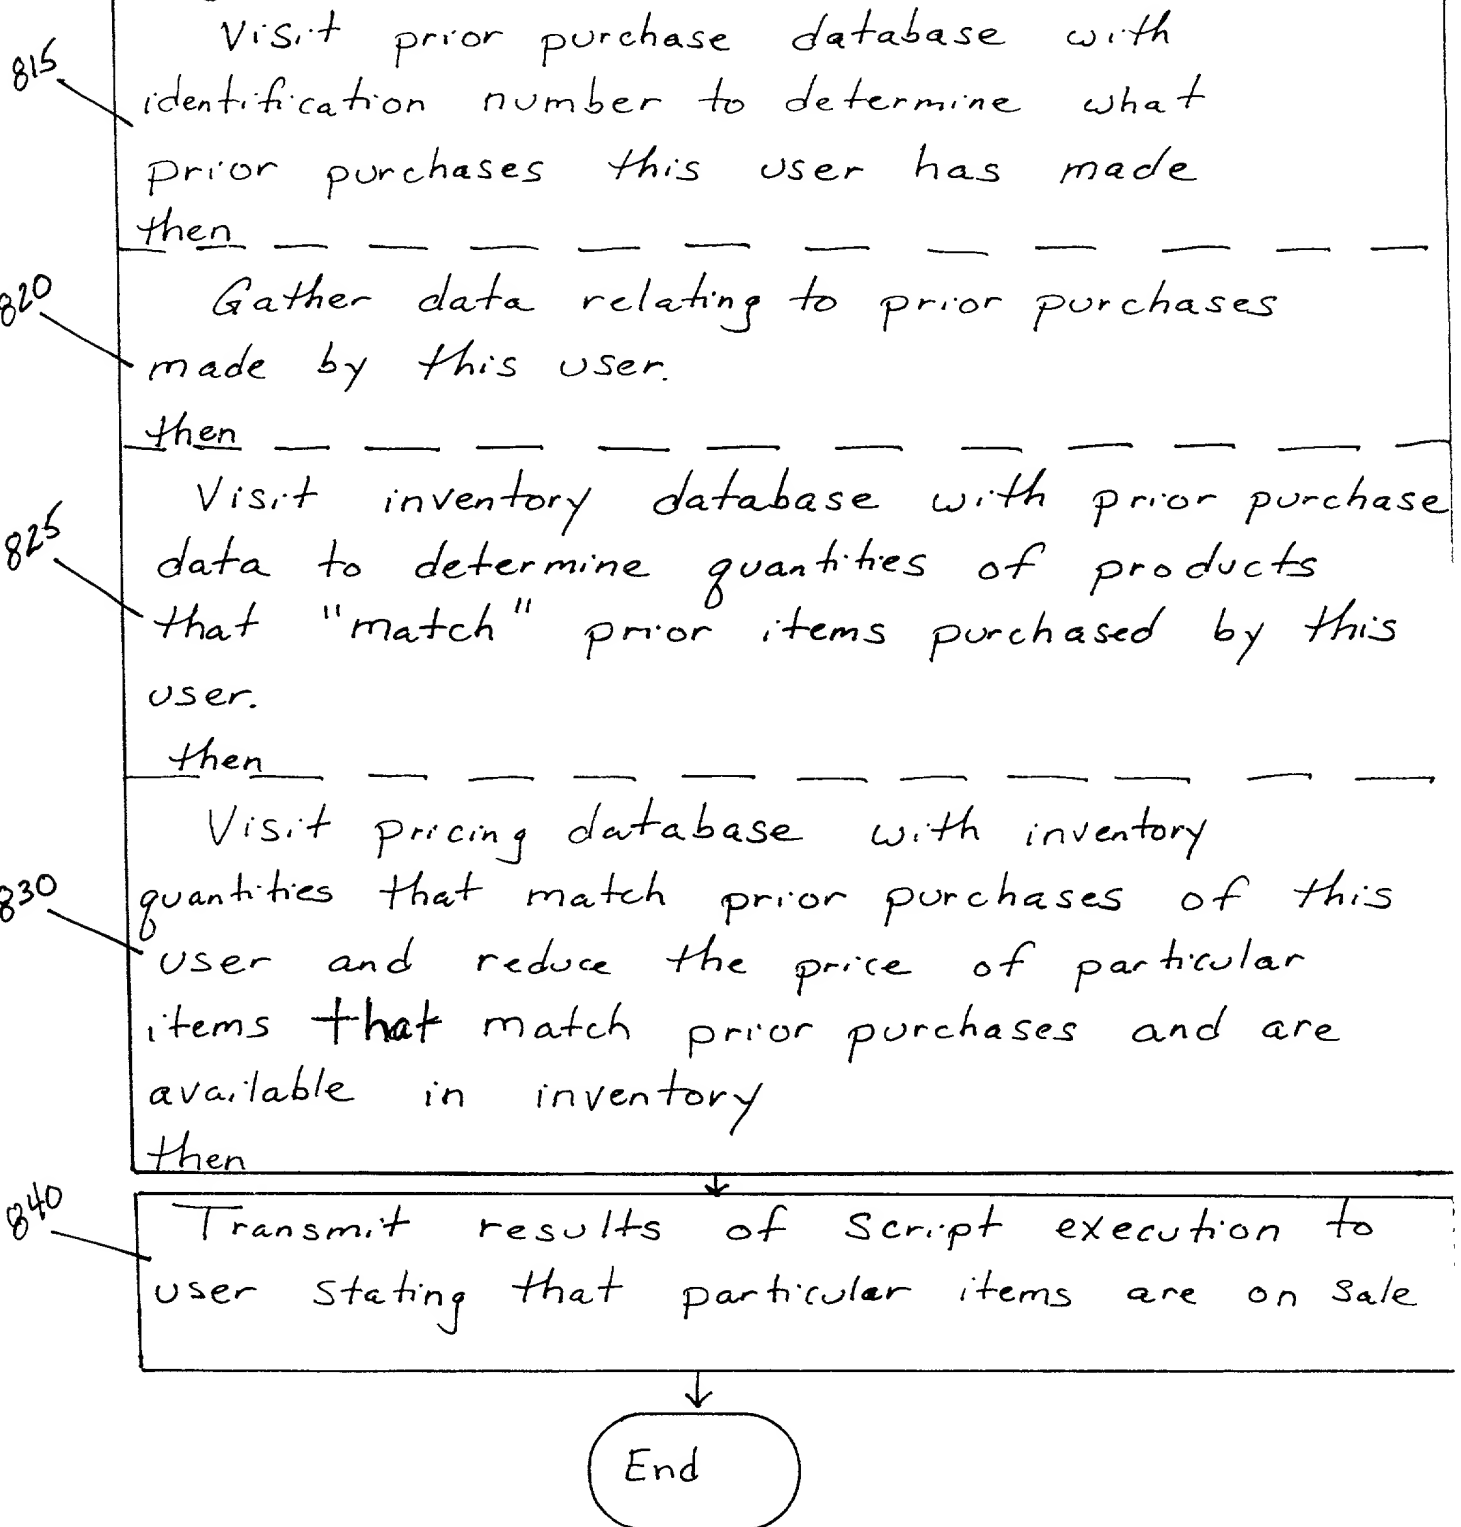 Visit prior purchase database with
815
identification number to determine what
prior purchases this user has made
then
820
Gather data relating to prior purchases
made by this user.
then
Visit inventory database with prior purchase
825
data to determine quantities of products
that "match" prior items purchased by this
user.
then
Visit pricing database with inventory
830
quantities that match prior purchases of this
user and reduce the price of particular
items that match prior purchases and are
available in inventory
then
840
Transmit results of Script execution to
user stating that particular items are on sale
End